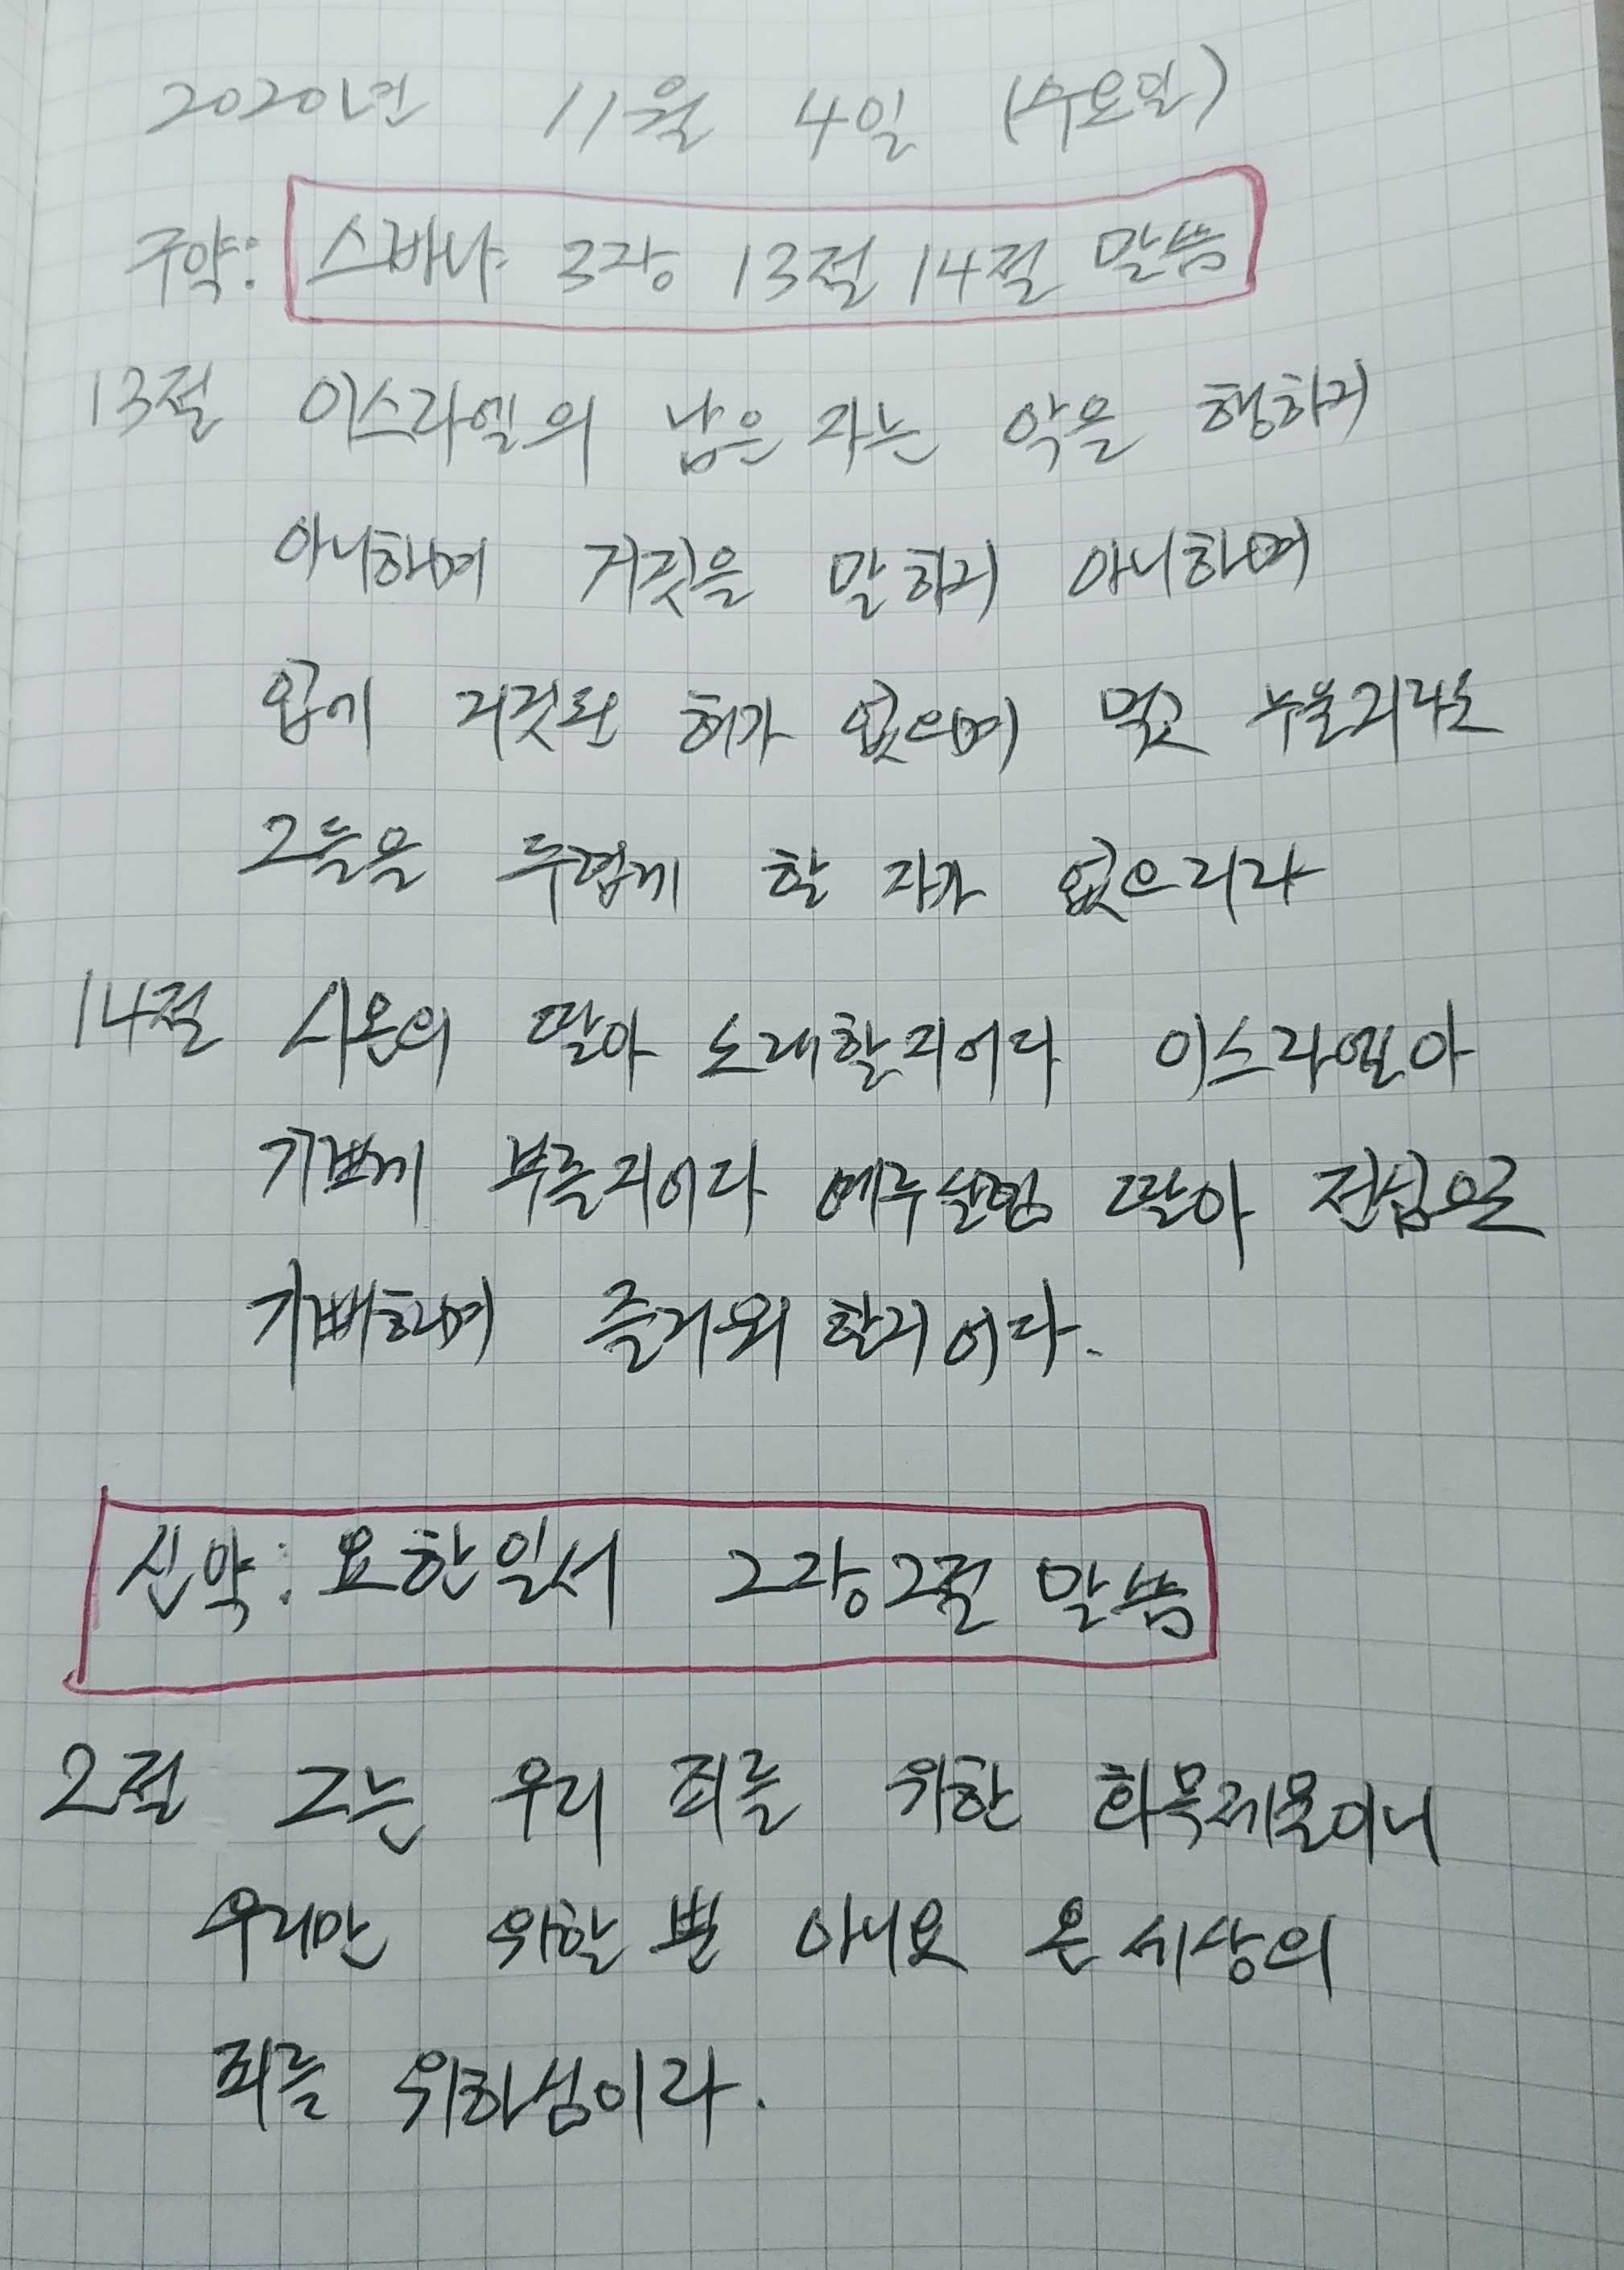 2020년 11월 4일 (수요일)
구약: 스바냐 3장 13절 14절 말씀
13절 이스라엘의 남은 자는 악을 행하지
아니하며 거짓을 말하지 아니하며
입에 거짓된 혀가 없으며 먹고 누울지라도
그들을 두렵게 할 자가 없으리라
14절 시온의 딸아 노래할지어다 이스라엘아
기쁘게 부를지어다 예루살렘 딸아 전심으로
기뻐하며 즐거워 할지어다.
신약: 요한일서 2장 2절 말씀
2절 그는 우리 죄를 위한 화목제물이니
우리만 위할 뿐 아니요 온 세상의
죄를 위하심이라.